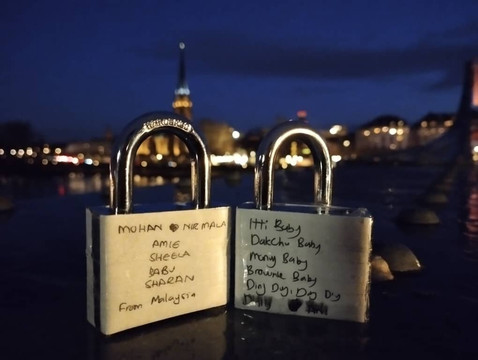 MOHAN ♥ NIRMALA
AMIE
SHEELA
BABU
SHARAN
From Malaysia
Itti Baby
DakChu Baby
Mong Baby
Brownie Baby
Ding Dog, Ding Dig